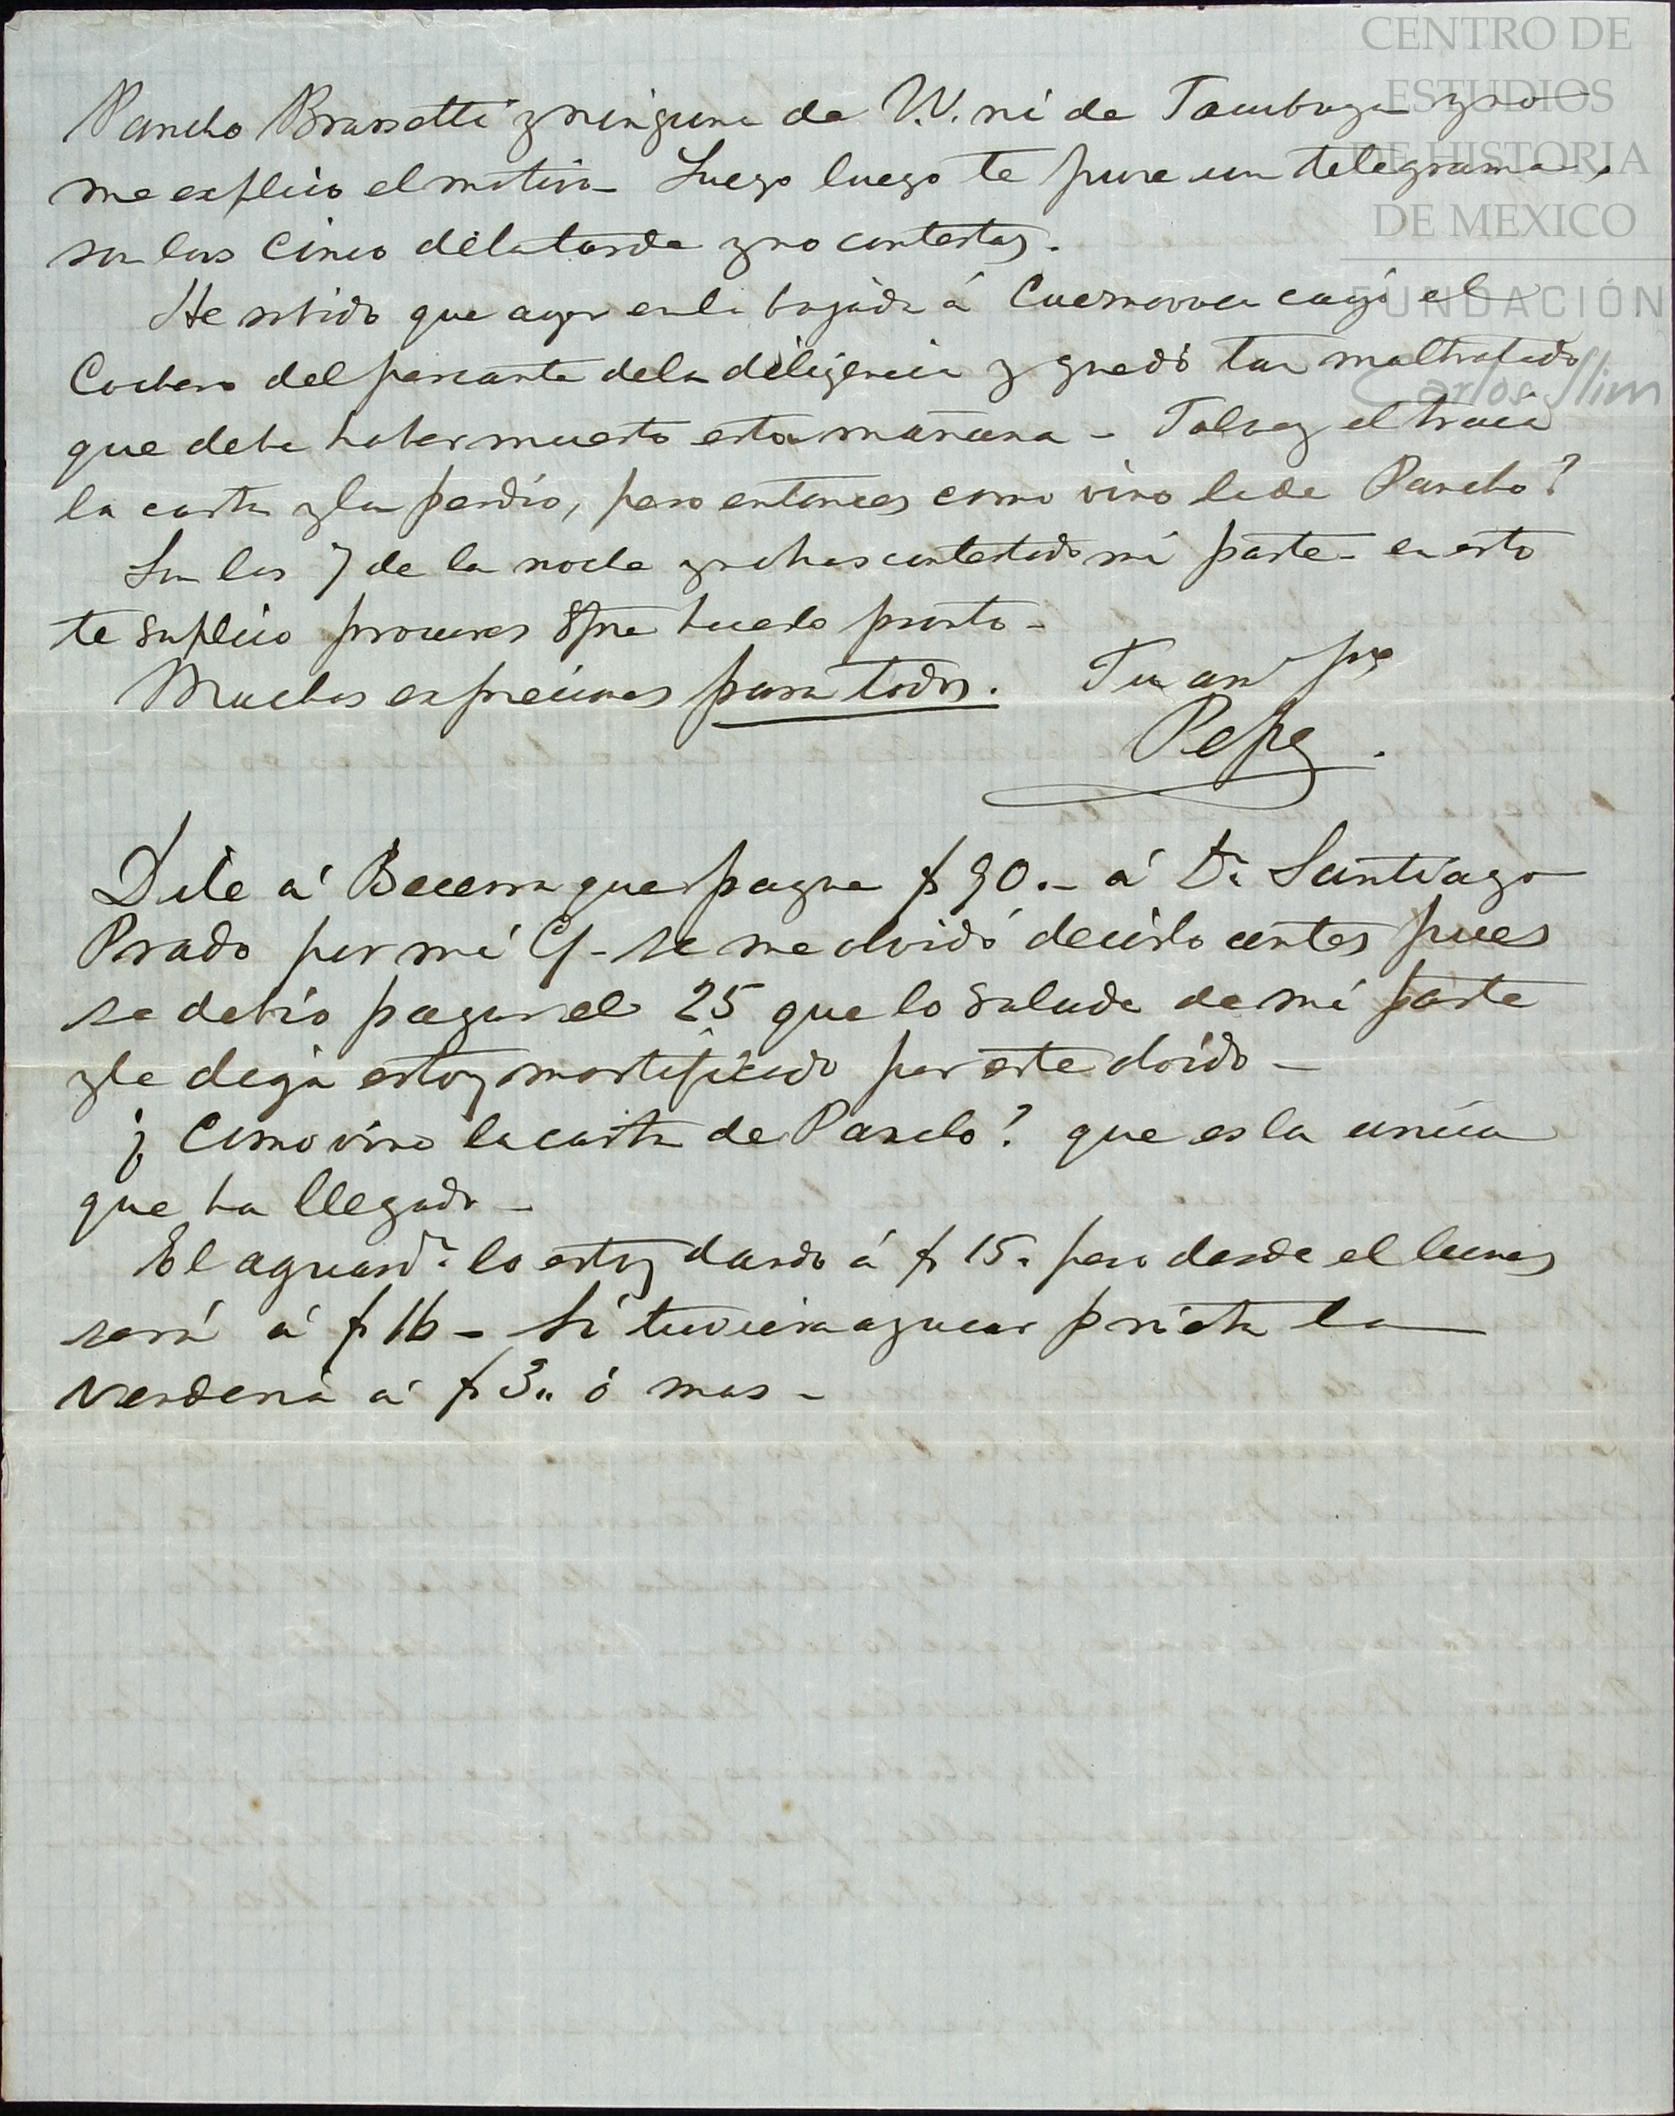 CENTRO DE
ESTUDIOS
DE HISTORIA
DE MEXICO
FUNDACIÓN
Carlos Slim
Pancho Brassetti y ninguna de V.V. ni de Tacubaya y no
me esplico el motivo - Luego luego te puse un telegrama,
son las cinco de la tarde y no contestas.
He sabido que ayer en la bajada á Cuernavaca cayó el
Cochero del pescante de la diligencia y quedó tan maltratado
que debe haber muerto esta mañana - Talvez el traia
la carta y la perdio, pero entonces como vino la de Pancho?
Son las 7 de la noche y no has contestado mi parte - en esto
te suplico procures spre hacerlo pronto -
Muchas espreciones para todos. Tu
Pepe.
Dile á Becerra que pague $90.- á Dn Santiago
Prado por mi C/ - se me olvidó decirlo antes pues
se debio pagar el 25 que lo salude de mi parte
y le diga estoy mortificado por este olvido -
¿Como vino la carta de Pancho? que es la unica
que ha llegado -
El aguardte lo estoy dando á $15. pero desde el lunes
será á $16 - Si tuviera azucar prieta la
venderia á $3.. ó mas -